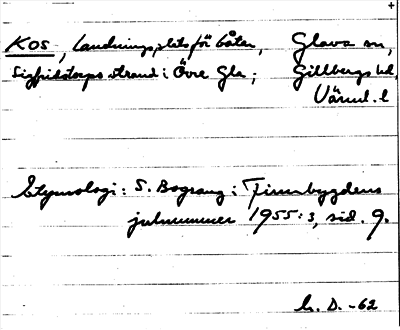 Kos, landningsplats för båtar, Glava sn,
Sigfridstorps strand i Övre Gla; Gillbergs hd,
Värml. l
Etymologi: S. Bograng: Finnbygdens
julnummer 1955:3, sid. 9.
D. -62